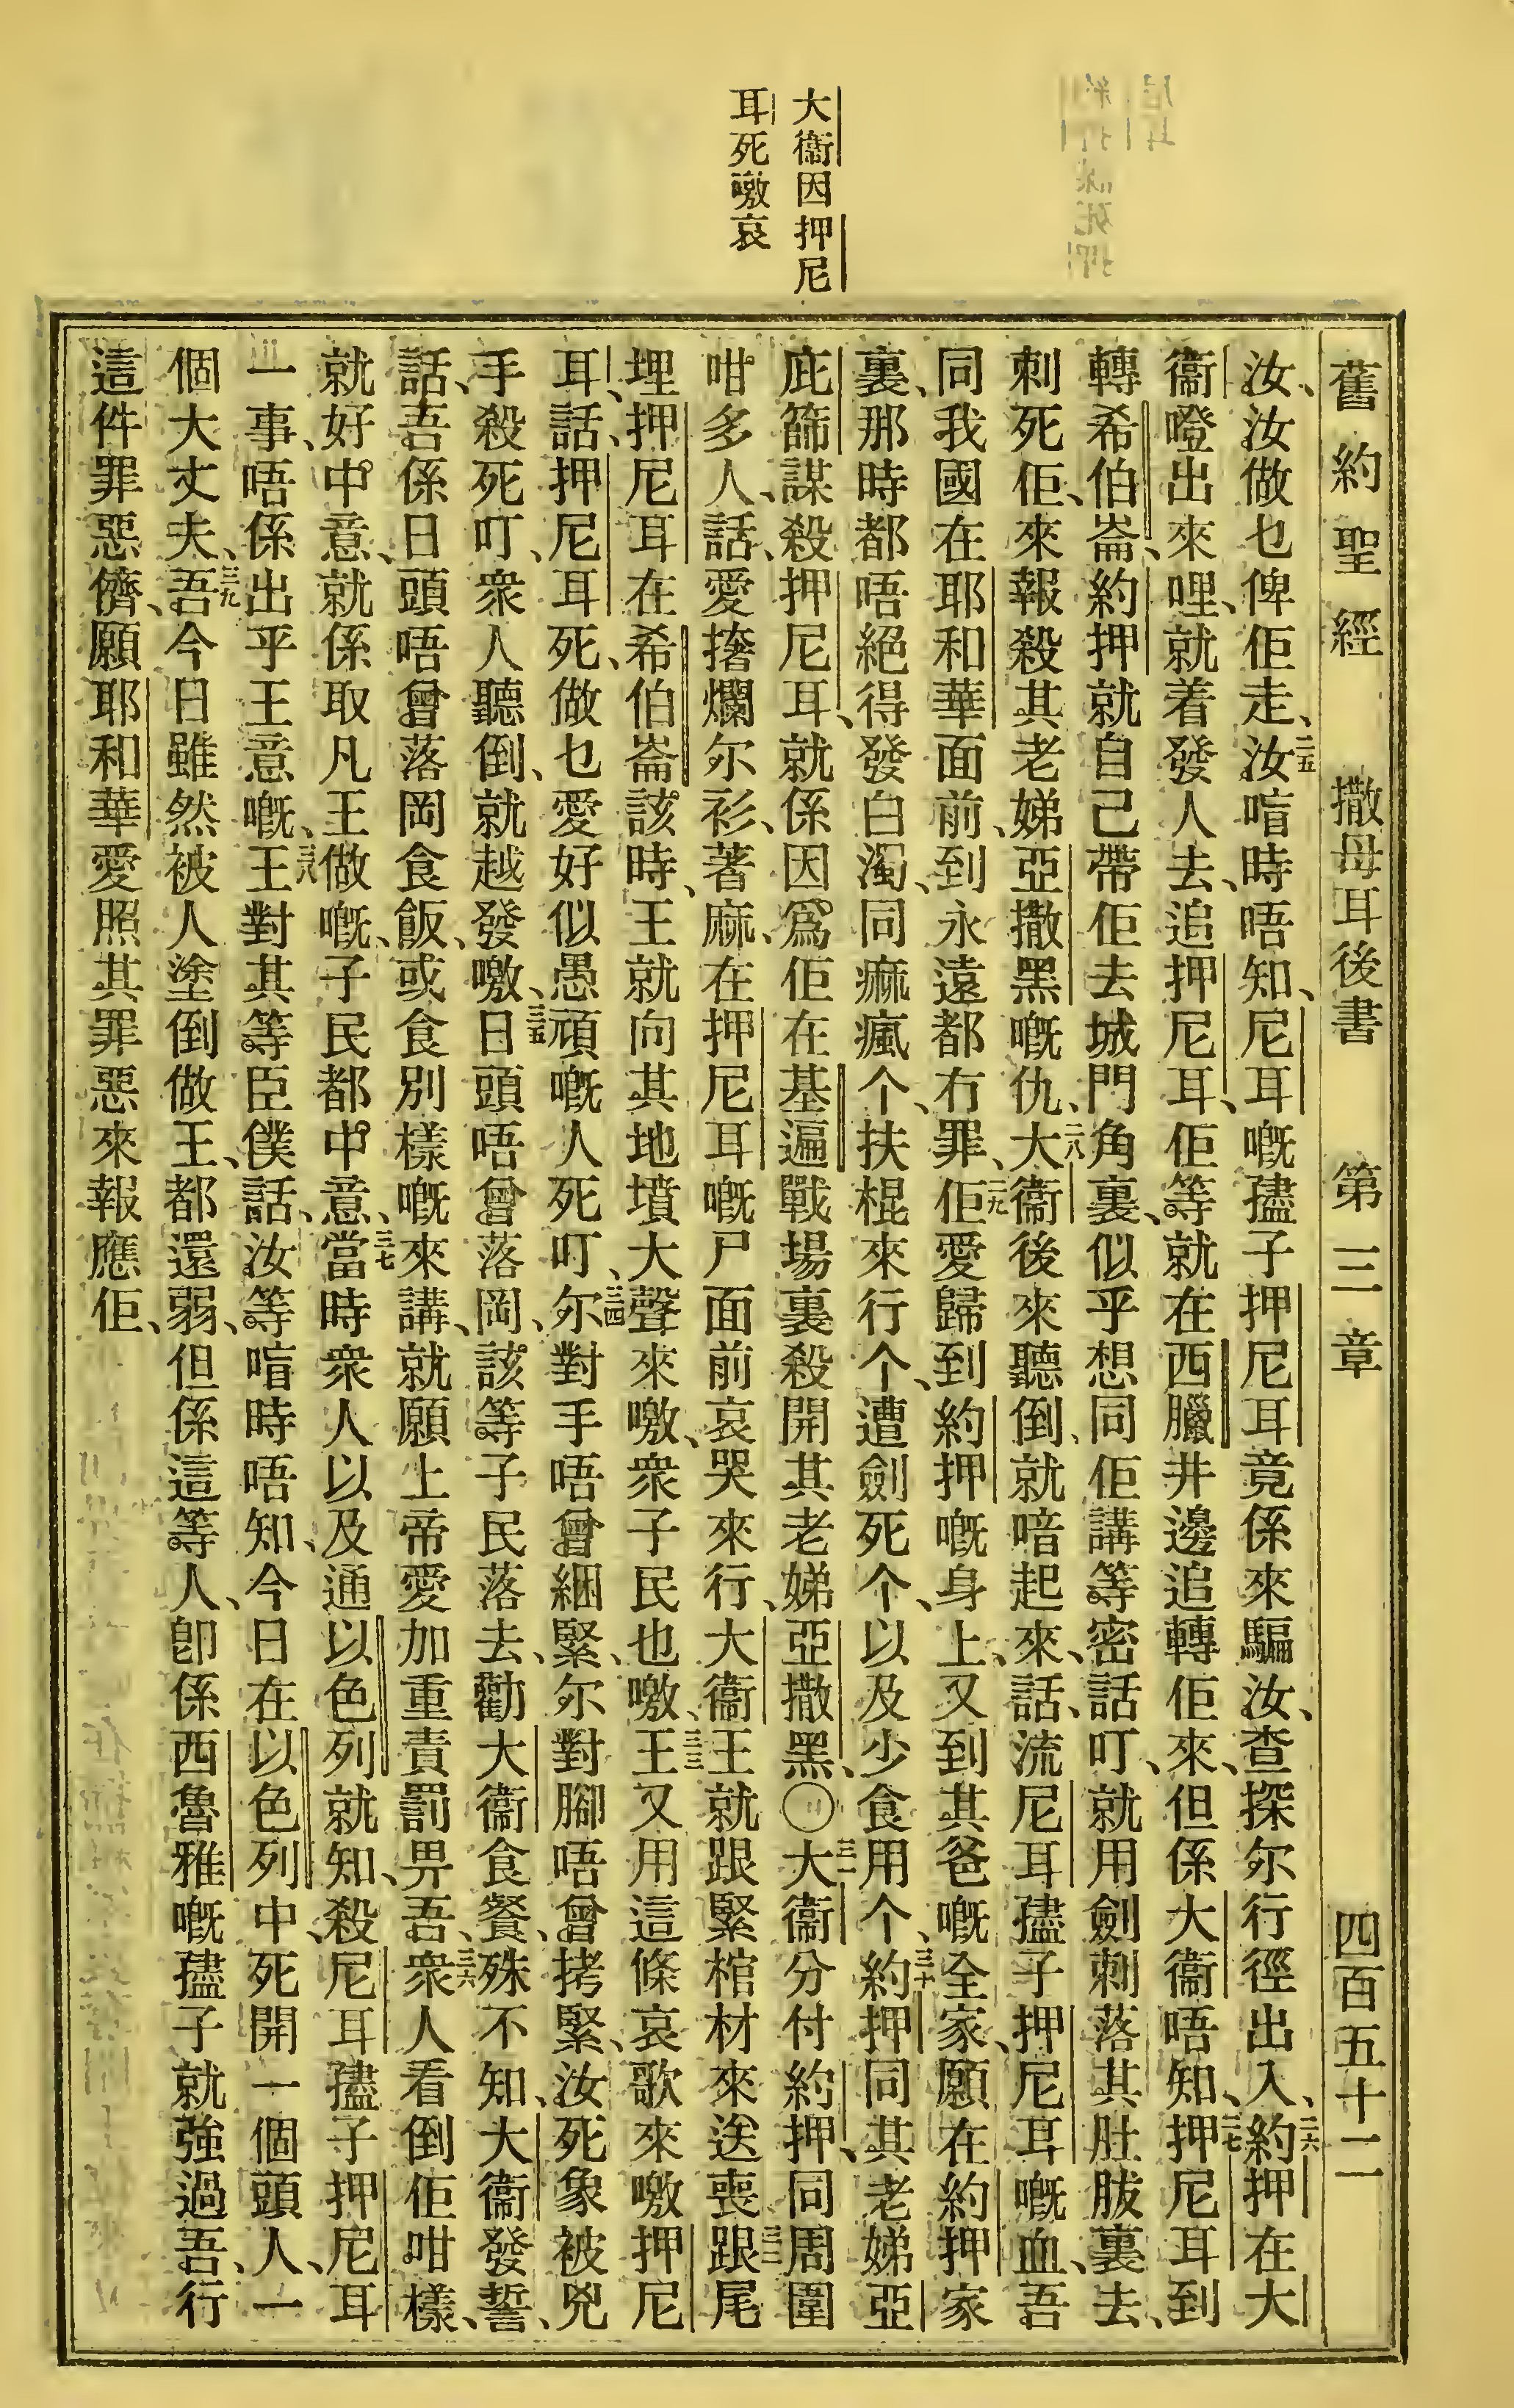 大衞因押尼
耳死噭哀
舊約聖經 撒母耳後書 第三章 四百五十二
汝、汝做乜俾佢走、二五汝喧時唔知、尼耳嘅孻子押尼耳竟係來騙汝、查探尔行徑出入、二六約押在大
衞嶝出來哩、就着發人去、追押尼耳、佢等就在西臘井邊追轉佢來、但係大衞唔知、二七押尼耳到
轉希伯崙、約押就自己帶佢去城門角裏、似乎想同佢講等密話叮、就用劍刺落其肚胈裏去、
刺死佢、來報殺其老娣亞撒黑嘅仇、二八大衞後來聽倒、就喑起來、話、流尼耳孻子押尼耳嘅血、吾
同我國在耶和華面前、到永遠都冇罪、二九佢愛歸到約押嘅身上、又到其爸嘅全家、願在約押家
裏、那時都唔絕得發白濁、同痲瘋个、扶棍來行个、遭劍死个、以及少食用个、三十約押同其老娣亞
庇篩謀殺押尼耳、就係因爲佢在基遍戰場裏殺開其老娣亞撒黑、〇三一大衞分付約押、同周圍
咁多人、話、愛撦爛尔衫、著麻、在押尼耳嘅尸面前哀哭來行、大衞王就跟緊棺材來送喪、三二跟尾
埋押尼耳在希伯崙、該時、王就向其地墳大聲來噭、衆子民也噭、三三王又用這條哀歌來噭押尼
耳、話、押尼耳死、做乜愛好似愚頑嘅人死叮、三四尔對手唔曾綑緊、尔對腳唔曾拷緊、汝死象被兇
手殺死叮、衆人聽倒、就越發噭、三五日頭唔曾落岡、該等子民落去、勸大衞食餐、殊不知、大衞發誓、
話、吾係日頭唔曾落岡食飯、或食別樣嘅來講、就願上帝愛加重責罰畀吾、三六衆人看倒佢咁樣、
就好中意、就係取凡王做嘅、子民都中意、三七當時衆人以及通以色列就知、殺尼耳孻子押尼耳
一事、唔係出乎王意嘅、三八王對其等臣僕話、汝等喧時唔知、今日在以色列中、死開一個頭人、一
個大丈夫、三九吾今日雖然被人塗倒做王、都還弱、但係這等人、卽係西魯雅嘅孻子就強過吾、行
這件罪惡儕、願耶和華愛照其罪惡來報應佢、